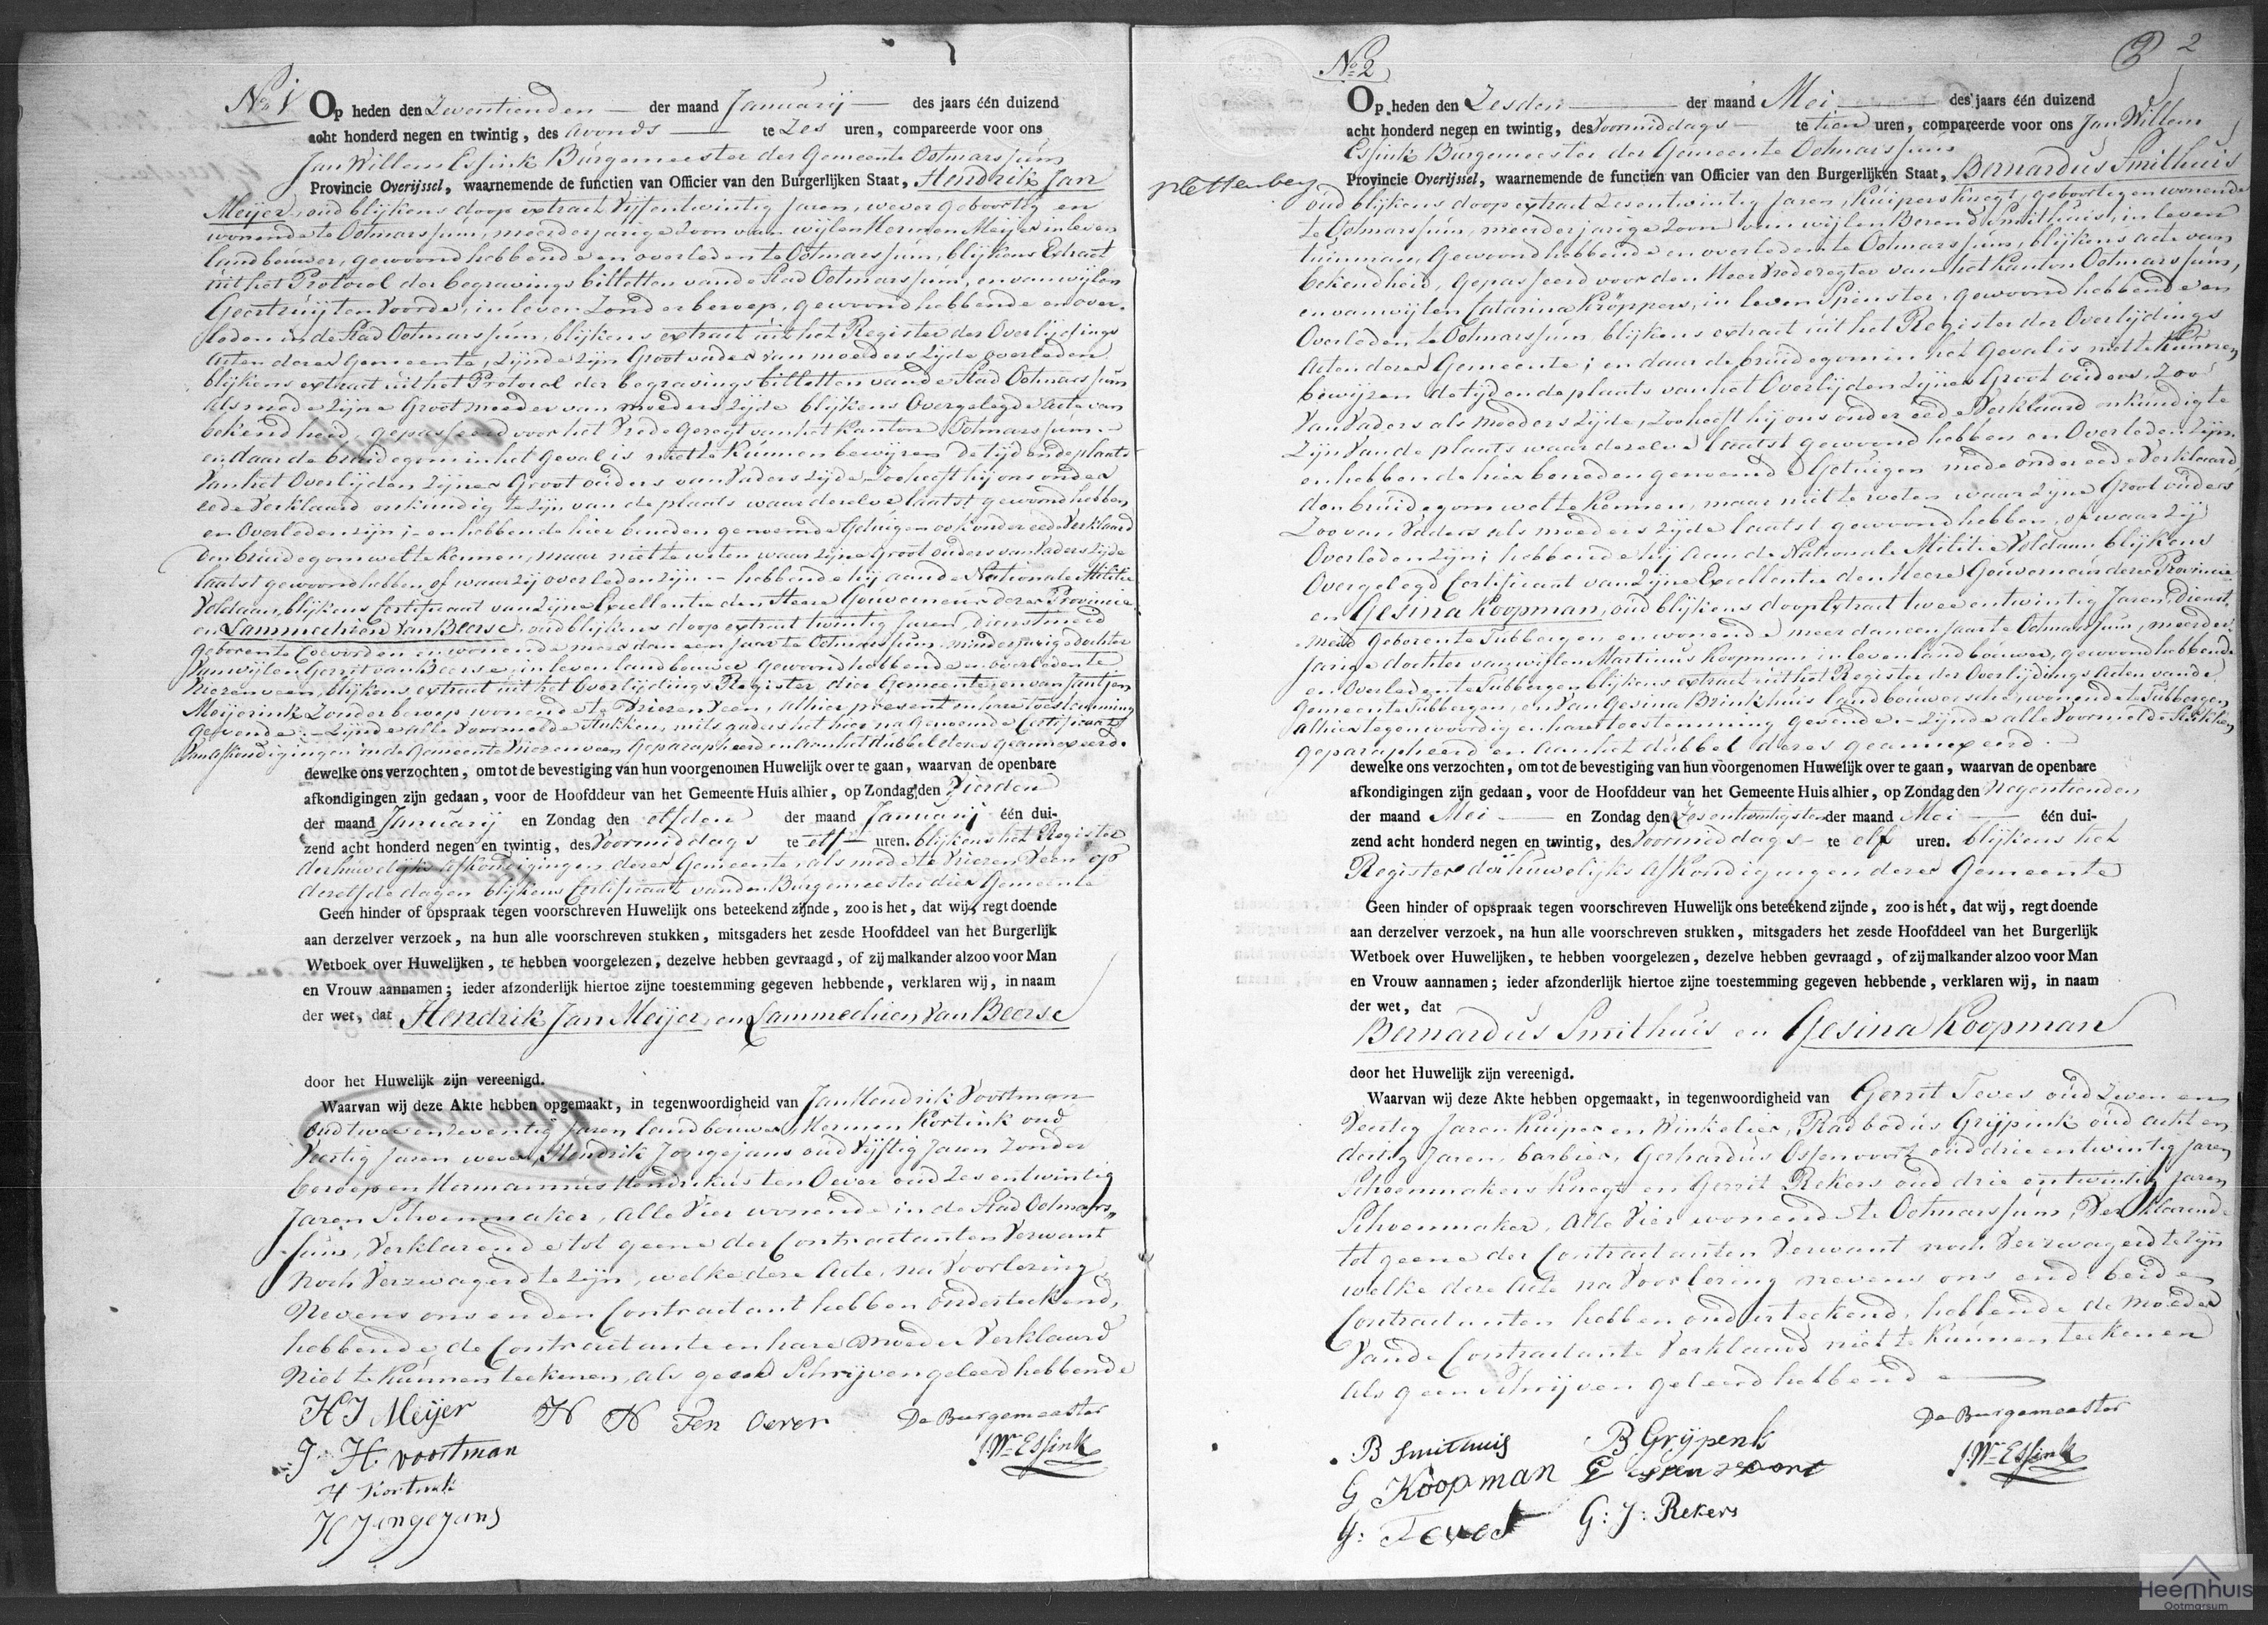 No 1
Op heden den Zeventienden der maand Januarij des jaars één duizend
acht honderd negen en twintig, des avonds te Zes uren, compareerde voor ons
Jan Willem Essink Burgemeester der Gemeente Ootmarssum
Provincie Overijssel, waarnemende de functien van Officier van den Burgerlijken Staat, Hendrik Jan
Meijer, oud blijkens doop extract Vijfentwintig Jaren, wever geboortig en
wonende te Ootmarssum, meerderjarige Zoon van wijlen Hermen Meijer in leven
landbouwer, gewoond hebbende en overleden te Ootmarssum, blijkens Extract
uit het Protocol der begravings billetten van de Stad Ootmarssum, en van wijlen
Geertruijt en Voorde, in leven Zonder beroep, gewoond hebbende en over-
leden in de Stad Ootmarssum, blijkens extract uit het Register der Overlijdings
Acten dezer Gemeente, zijnde zijn Grootvader van moeders zijde overleden
blijkens extract uit het Protocol der begravings billetten van de Stad Ootmarssum
als mede zijne Grootmoeder van moeders zijde blijkens Overgelegde acte van
bekendheid, gepasseerd voor het Vrede Geregt van het Kanton Ootmarssum.-
en daar de bruidegom in het geval is niet te kunnen bewijzen de tijd en de plaats
van het Overlijden Zijner Groot ouders van Vaders zijde, Zoo heeft hij ons onder
eede Verklaard onkundig te zijn van de plaats waar dezelve laatst gewoond hebben
en Overleden zijn;- en hebben de hier beneden genoemde Getuigen ook onder eede Verklaard
den bruidegom wel te kennen, maar niet te weten waar zijne Groot ouders van Vaders zijde
laatst gewoond hebben of waar zij overleden zijn.- hebbende hij aan de Nationale Militie
Voldaan, blijkens Certificaat van Zijne Excellentie den Heere Gouverneur dezer Provincie
en Lammechien van Beerse, oud blijkens doop extract twintig Jaren, dienstmeid
geboren te Coevorden en wonende meer dan een jaar te Ootmarssum, minderjarige dochter
van wijlen Gerrit van Beerse, in leven landbouwer gewoond hebbende en overleden te
Vriezenveen, blijkens extract uit het Overlijdings Register dier Gemeente; en van Jantjen
Meijerink Zonder beroep wonende te Vriezenveen, alhier present en hare toestemming
gevende.- Zijnde alle Voormelde Stukken, mitsgaders het hier na genoemde Certificaat
van afkondigingen in de Gemeente Vriezenveen geparapheerd en aan het dubbel dezes geannexeerd.
dewelke ons verzochten, om tot de bevestiging van hun voorgenomen Huwelijk over te gaan, waarvan de openbare
afkondigingen zijn gedaan, voor de Hoofddeur van het Gemeente Huis alhier, op Zondag den Vierden
der maand Januarij en Zondag den elfden der maand Januarij één dui-
zend acht honderd negen en twintig, des Voormiddags te elf uren. blijkens het Register
der huwelijks afkondigingen dezer Gemeente, als mede te Vriezenveen op
dezelfde dagen blijkens Certificaat van den Burgemeester dier Gemeente
Geen hinder of opspraak tegen voorschreven Huwelijk ons beteekend zijnde, zoo is het, dat wij, regt doende
aan derzelver verzoek, na hun alle voorschreven stukken, mitsgaders het zesde Hoofddeel van het Burgerlijk
Wetboek over Huwelijken, te hebben voorgelezen, dezelve hebben gevraagd, of zij malkander alzoo voor Man
en Vrouw aannamen; ieder afzonderlijk hiertoe zijne toestemming gegeven hebbende, verklaren wij, in naam
der wet, dat Hendrik Jan Meijer en Lammechien van Beerse
door het Huwelijk zijn vereenigd.
Waarvan wij deze Akte hebben opgemaakt, in tegenwoordigheid van Jan Hendrik Voortman
oud twee en zeventig Jaren landbouwer, Hermen Kortink oud
Veertig Jaren wever, Hendrik Jongejans oud Vijftig Jaren Zonder
beroep en Hermannus Hendrikus ten Oever oud Zes en twintig
Jaren Schoenmaker, alle Vier wonende in de Stad Ootmars-
sum, Verklarende tot geene der Contractanten Verwant
noch Verzwagerd te zijn, welke deze Acte, na Voorlezing
Nevens ons en den Contractant hebben onderteekend,
hebbende de Contractante en hare Moeder Verklaard
niet te kunnen teekenen, als geen Schrijven geleerd hebbende
HJ Meijer
H H Ten Oever
De Burgemeester
J H Voortman
J.W. Essink
H Kortink
H Jongejans
2
No 2
Op heden den Zesden der maand Mei des jaars één duizend
acht honderd negen en twintig, des Voormiddags te tien uren, compareerde voor ons Jan Willem
Essink Burgemeester der Gemeente Ootmarssum
Provincie Overijssel, waarnemende de functien van Officier van den Burgerlijken Staat, Bernardus Smithuis
plettenberg
oud blijkens doop extract Zes en twintig Jaren, Kuipers Knegt, geboortig en wonende
te Ootmarssum, meerderjarige Zoon van wijlen Berend Smithuis, in leven
tuinman, Gewoond hebbende en overleden te Ootmarssum, blijkens acte van
bekendheid, gepasseerd voor den Heer Vrederegter van het Kanton Ootmarssum,
en van wijlen Catarina Kröppers, in leven Spinster, gewoond hebbende en
Overleden te Ootmarssum blijkens extract uit het Register der Overlijdings
Acten dezer Gemeente; en daar de bruidegom in het geval is niet te kunnen
bewijzen de tijd en de plaats van het Overlijden Zijner Groot ouders, Zoo
Van Vaders als Moeders zijde, Zoo heeft hij ons onder eede Verklaard onkundig te
Zijn Van de plaats waar dezelve laatst gewoond hebben en Overleden zijn.
en hebben de hier beneden genoemde Getuigen mede onder eede Verklaard,
den bruidegom wel te kennen, maar niet te weten waar zijne Groot ouders
Zoo van Vaders als moeders zijde laatst gewoond hebben, of waar zij
Overleden zijn; hebbende hij aan de Nationale Militie Voldaan blijkens
Overgelegd Certificaat van Zijne Excellentie den Heere Gouverneur dezer Provincie
en Gesina Koopman, oud blijkens doop Extract twee en twintig Jaren, Dienst-
meid geboren te Tubbergen en wonende meer dan een Jaar te Ootmarssum, meerder-
jarige dochter van wijlen Martinus Koopman in leven landbouwer, gewoond hebbende
en Overleden te Tubbergen blijkens extract uit het Register der Overlijdings Acten van de
Gemeente Tubbergen, en Van Gesina Brinkhuis landbouwersche, wonende te Tubbergen,
alhier tegenwoordig en hare toestemming gevende.- Zijnde alle Voormelde Stukken
geparapheerd en aan het dubbel dezes geannexeerd.-
dewelke ons verzochten, om tot de bevestiging van hun voorgenomen Huwelijk over te gaan, waarvan de openbare
afkondigingen zijn gedaan, voor de Hoofddeur van het Gemeente Huis alhier, op Zondag den Negentienden
der maand Mei en Zondag den Zes en twintigsten der maand Mei één dui-
zend acht honderd negen en twintig, des Voormiddags te elf uren. blijkens het
Register der huwelijks afkondigingen dezer Gemeente
Geen hinder of opspraak tegen voorschreven Huwelijk ons beteekend zijnde, zoo is het, dat wij, regt doende
aan derzelver verzoek, na hun alle voorschreven stukken, mitsgaders het zesde Hoofddeel van het Burgerlijk
Wetboek over Huwelijken, te hebben voorgelezen, dezelve hebben gevraagd, of zij malkander alzoo voor Man
en Vrouw aannamen; ieder afzonderlijk hiertoe zijne toestemming gegeven hebbende, verklaren wij, in naam
der wet, dat
Bernardus Smithuis en Gesina Koopman
door het Huwelijk zijn vereenigd.
Waarvan wij deze Akte hebben opgemaakt, in tegenwoordigheid van Gerrit Teves oud Zeven en
Veertig Jaren Kuiper en Winkelier, Radbodus Grijpink oud acht en
dertig Jaren, barbier, Gerhardus Ossenvoort oud drie en twintig Jaren
Schoenmakers Knegt en Gerrit Rekers oud drie en twintig Jaren
Schoenmaker, alle Vier wonende te Ootmarssum, Verklarende
tot geene der Contractanten Verwant noch Verzwagerd te zijn
welke deze Acte na Voorlezing nevens ons en de beide
Contractanten hebben onderteekend, hebbende de Moeder
Van de Contractante Verklaard niet te kunnen teekenen
als geen Schrijven geleerd hebbende
B Smithuis
B Grijpenk
De Burgemeester
G Koopman
J.W. Essink
G: Teves
G: J: Rekers
Heemhuis
Ootmarsum